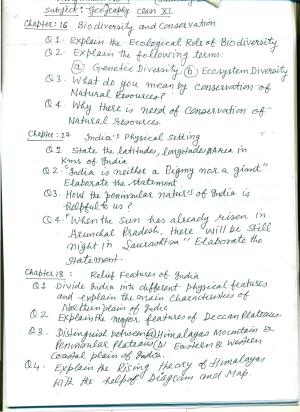 Subject: Geography Class XI
Chapter: 16 Biodiversity and Conservation
Q1. Explain the Ecological Role of Biodiversity
Q2. Explain the following terms:
(a) Genetic Diversity (b) Ecosystem Diversity
Q3. What do you mean by Conservation of
Natural Resources?
Q4. Why there is need of Conservation of
Natural resources.
Chapter: 17 India's Physical Setting
Q1. State the latitudes, longitudes & Area in
Kms of India
Q2. "India is neither a Pigmy nor a giant"
Elaborate the statement.
Q3. How the peninsular nature of India is
helpful to us?
Q4. "When the Sun has already risen in
Arunchal Pradesh, there will be still
night in Saurashtra" Elaborate the
statement.
Chapter 18: Relief Features of India
Q1 Divide India into different physical features
and explain the main characteristics of
Northern plain of India
Q2. Explain the major features of Deccan Plateau.
Q3. Distinguish between (a) Himalayas Mountain &
Peninsular Plateau (b) Eastern & Western
Coastal plain of India.
Q4. Explain the Rising theory of Himalayas
with the help of Diagram and Map.